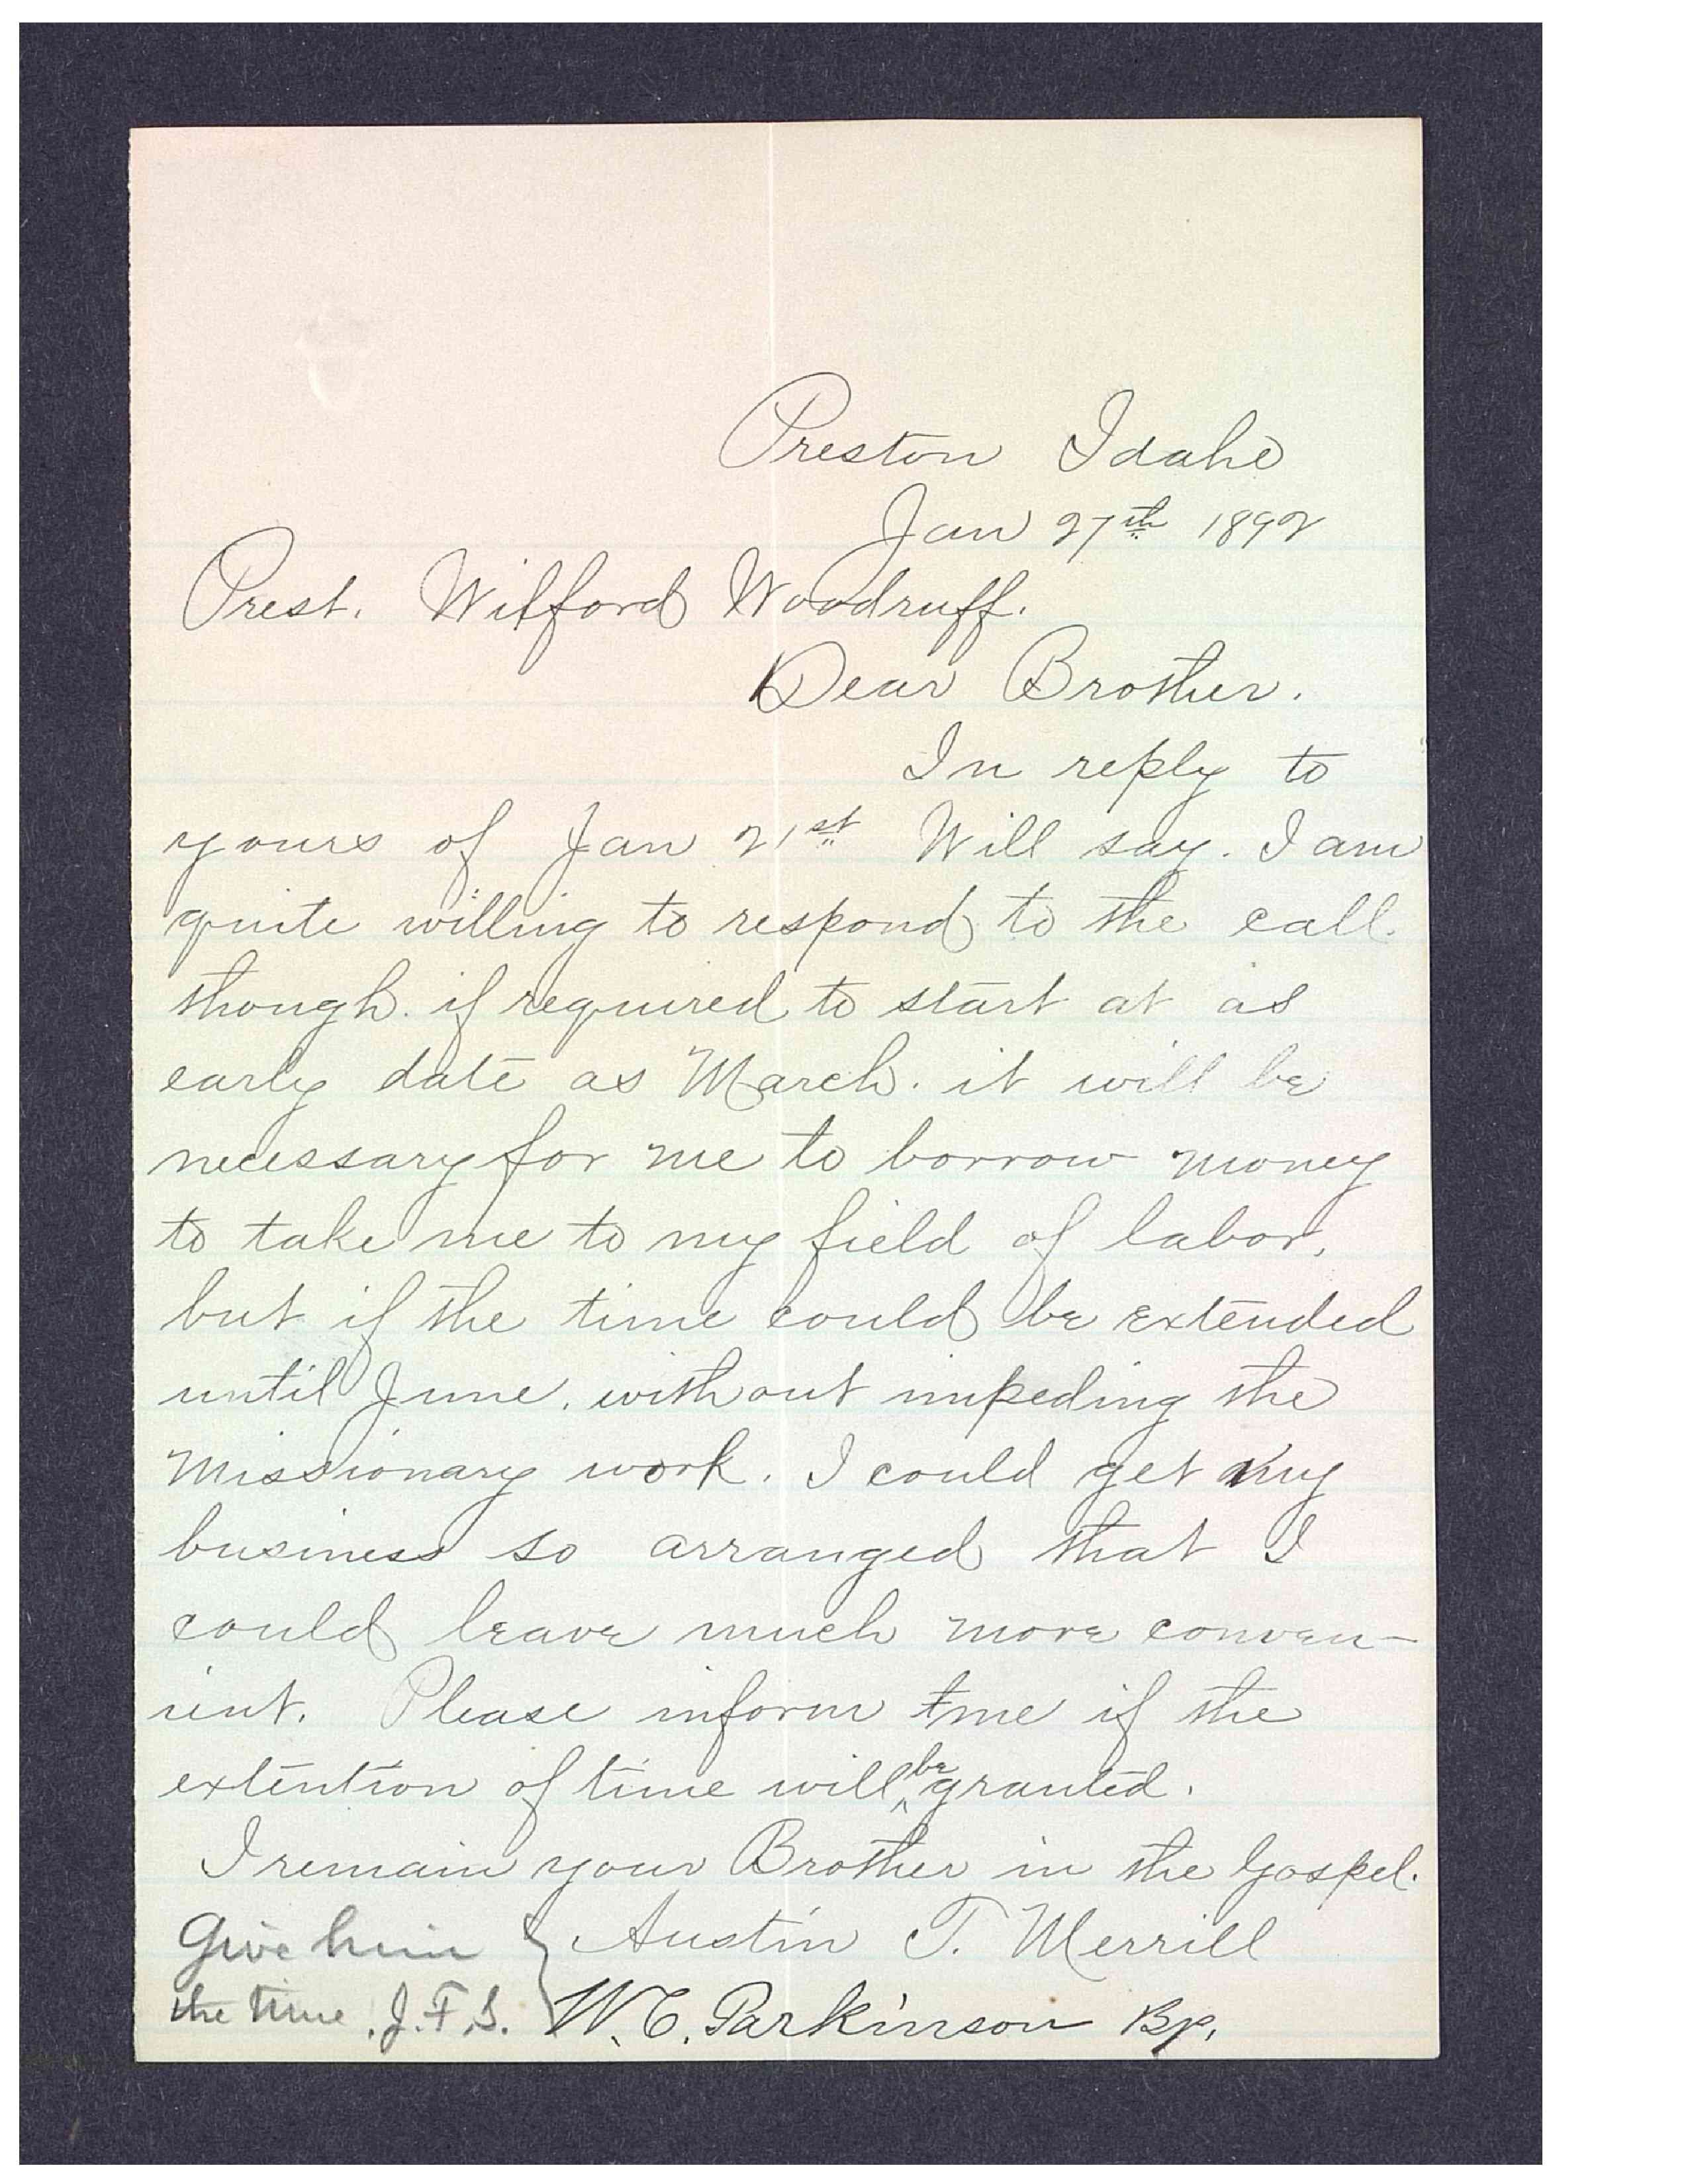 Preston Idaho
Jan 27th 1892
Prest. Wilford Woodruff.
Dear Brother.
In reply to
yours of Jan 21st Will say. I am
quite willing to respond to the call.
though. if required to start at as
early date as March. it will be
necessary for me to borrow money
to take me to my field of labor,
but if the time could be extended
until June, without impeding the
Missionary work. I could get my
business so arranged that I
could leave much more conven-
ient. Please inform me if the
extention of time will be granted.
I remain your Brother in the Gospel.
Austin T. Merrill
W. C. Parkinson Bp.
Give him
the time. J. F. S.